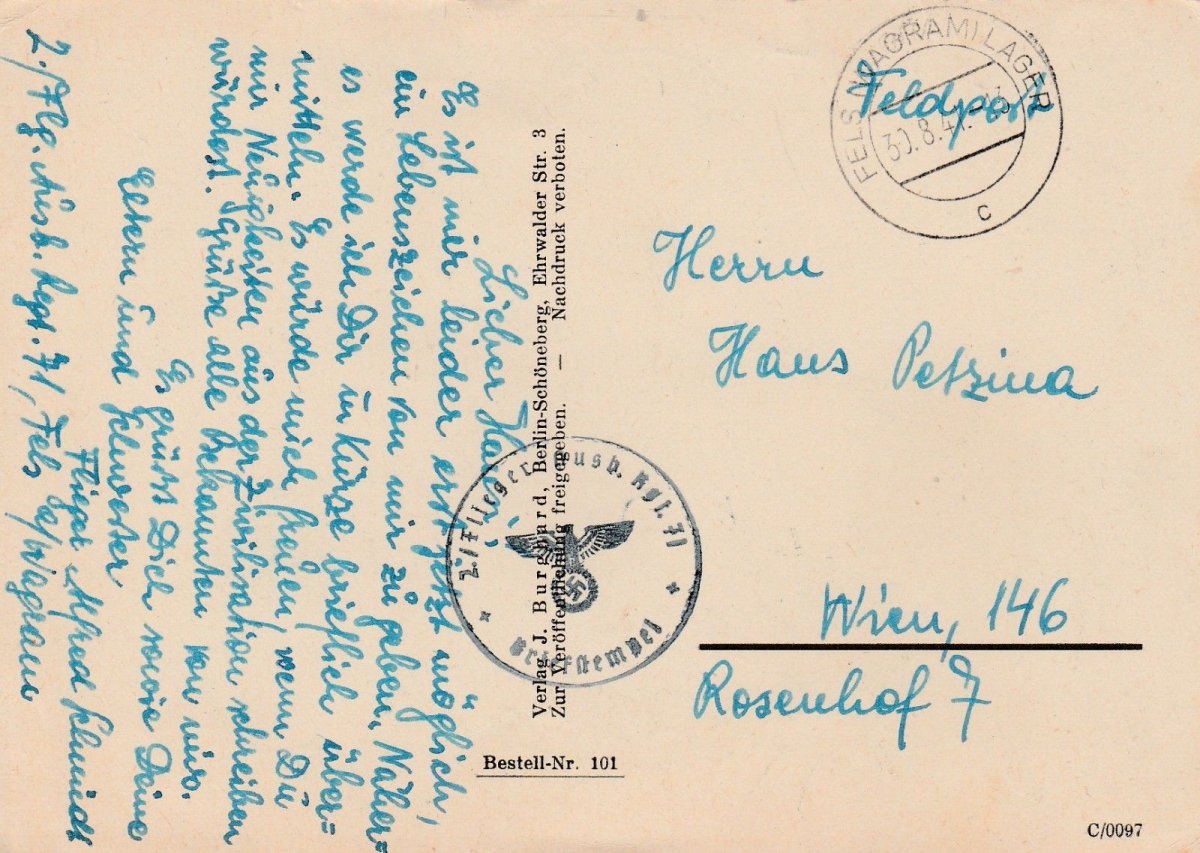 Lieber Hans!
Es ist mir leider erst jetzt möglich,
ein Lebenszeichen von mir zu geben. Näher=
es werde ich Dir in Kürze brieflich über=
mitteln. Es würde mich freuen, wenn Du
mir Neuigkeiten aus der Zivilisation schreiben
würdest. Grüße alle Bekannten von mir.
Es grüßt Dich sowie Deine
Eltern und Schwester
Flieger Alfred Schmidt
2./Flg. Ausb. Regt. 71, Fels a/Wagram
Verlag J. Burghard, Berlin-Schöneberg, Ehrwalder Str. 3
Zur Veröffentlichung freigegeben. — Nachdruck verboten.
Bestell-Nr. 101
2./Flieger Ausb. Rgt. 71
Briefstempel
FELS (WAGRAM) LAGER
30.8.4
c
Feldpost
Herrn
Hans Petzina
Wien, 146
Rosenhof 7
C/0097